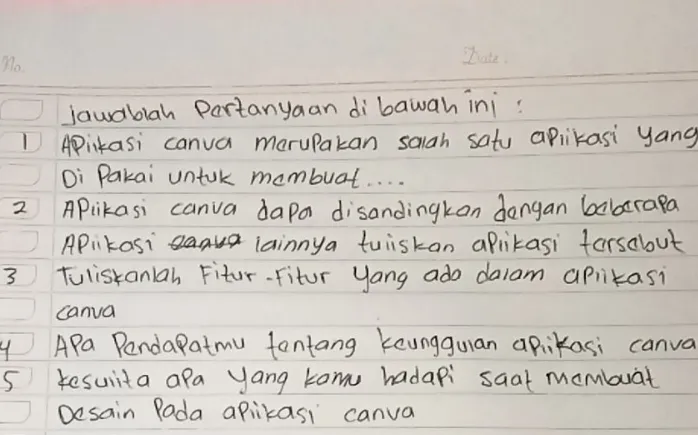 No. Date.
Jawablah Pertanyaan di bawah ini :
1 APlikasi canva merupakan salah satu aplikasi yang
Di Pakai untuk membuat....
2 APlikasi canva dapa disandingkan dengan beberapa
APlikasi canva lainnya tuliskan aplikasi tersebut
3 Tuliskanlah Fitur-Fitur yang ada dalam aplikasi
canva
4 APa Pendapatmu tentang keunggulan aplikasi canva
5 kesulita apa yang kamu hadapi saat membuat
Desain Pada aplikasi canva